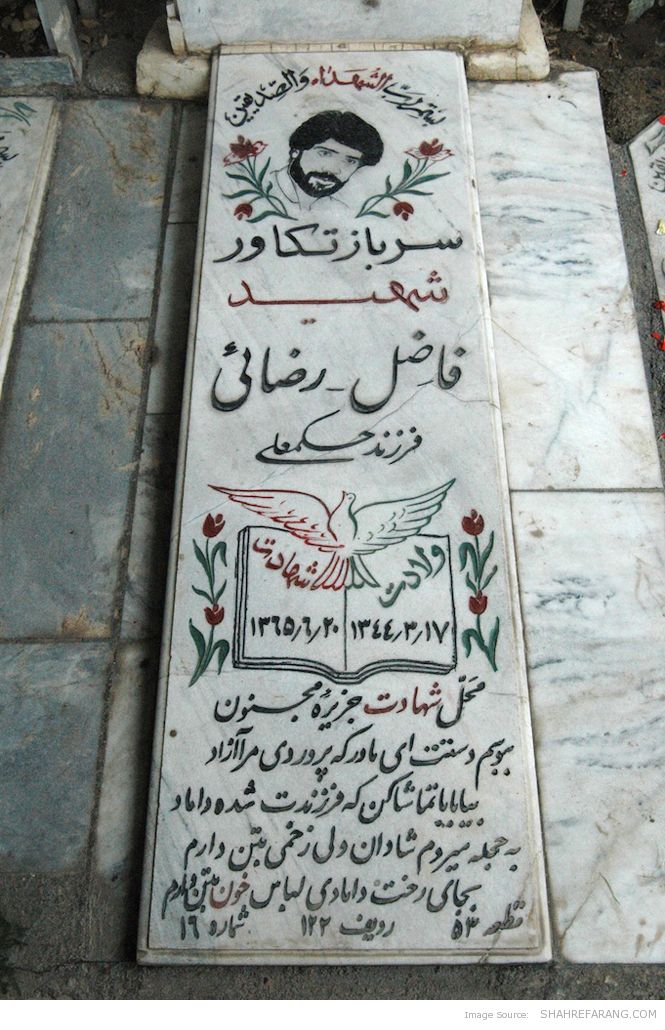 بنام رب الشهداء والصدیقین
سرباز تکاور
شهید
فاضل - رضائی
فرزند حکمعلی
ولادت
شهادت
۱۳۴۴٫۳٫۱۷
۱۳۶۵٫۶٫۲۰
محل شهادت جزیره مجنون
ببوسم دستت ای مادر که پروردی مرا آزاد
بیا بابا تماشا کن که فرزندت شده داماد
به حجله میروم شادان ولی زخمی بتن دارم
بجای رخت دامادی لباس خون بتن دارم
قطعه ۵۳ ردیف ۱۲۲ شماره ۱۶
Image Source: SHAHREFARANG.COM